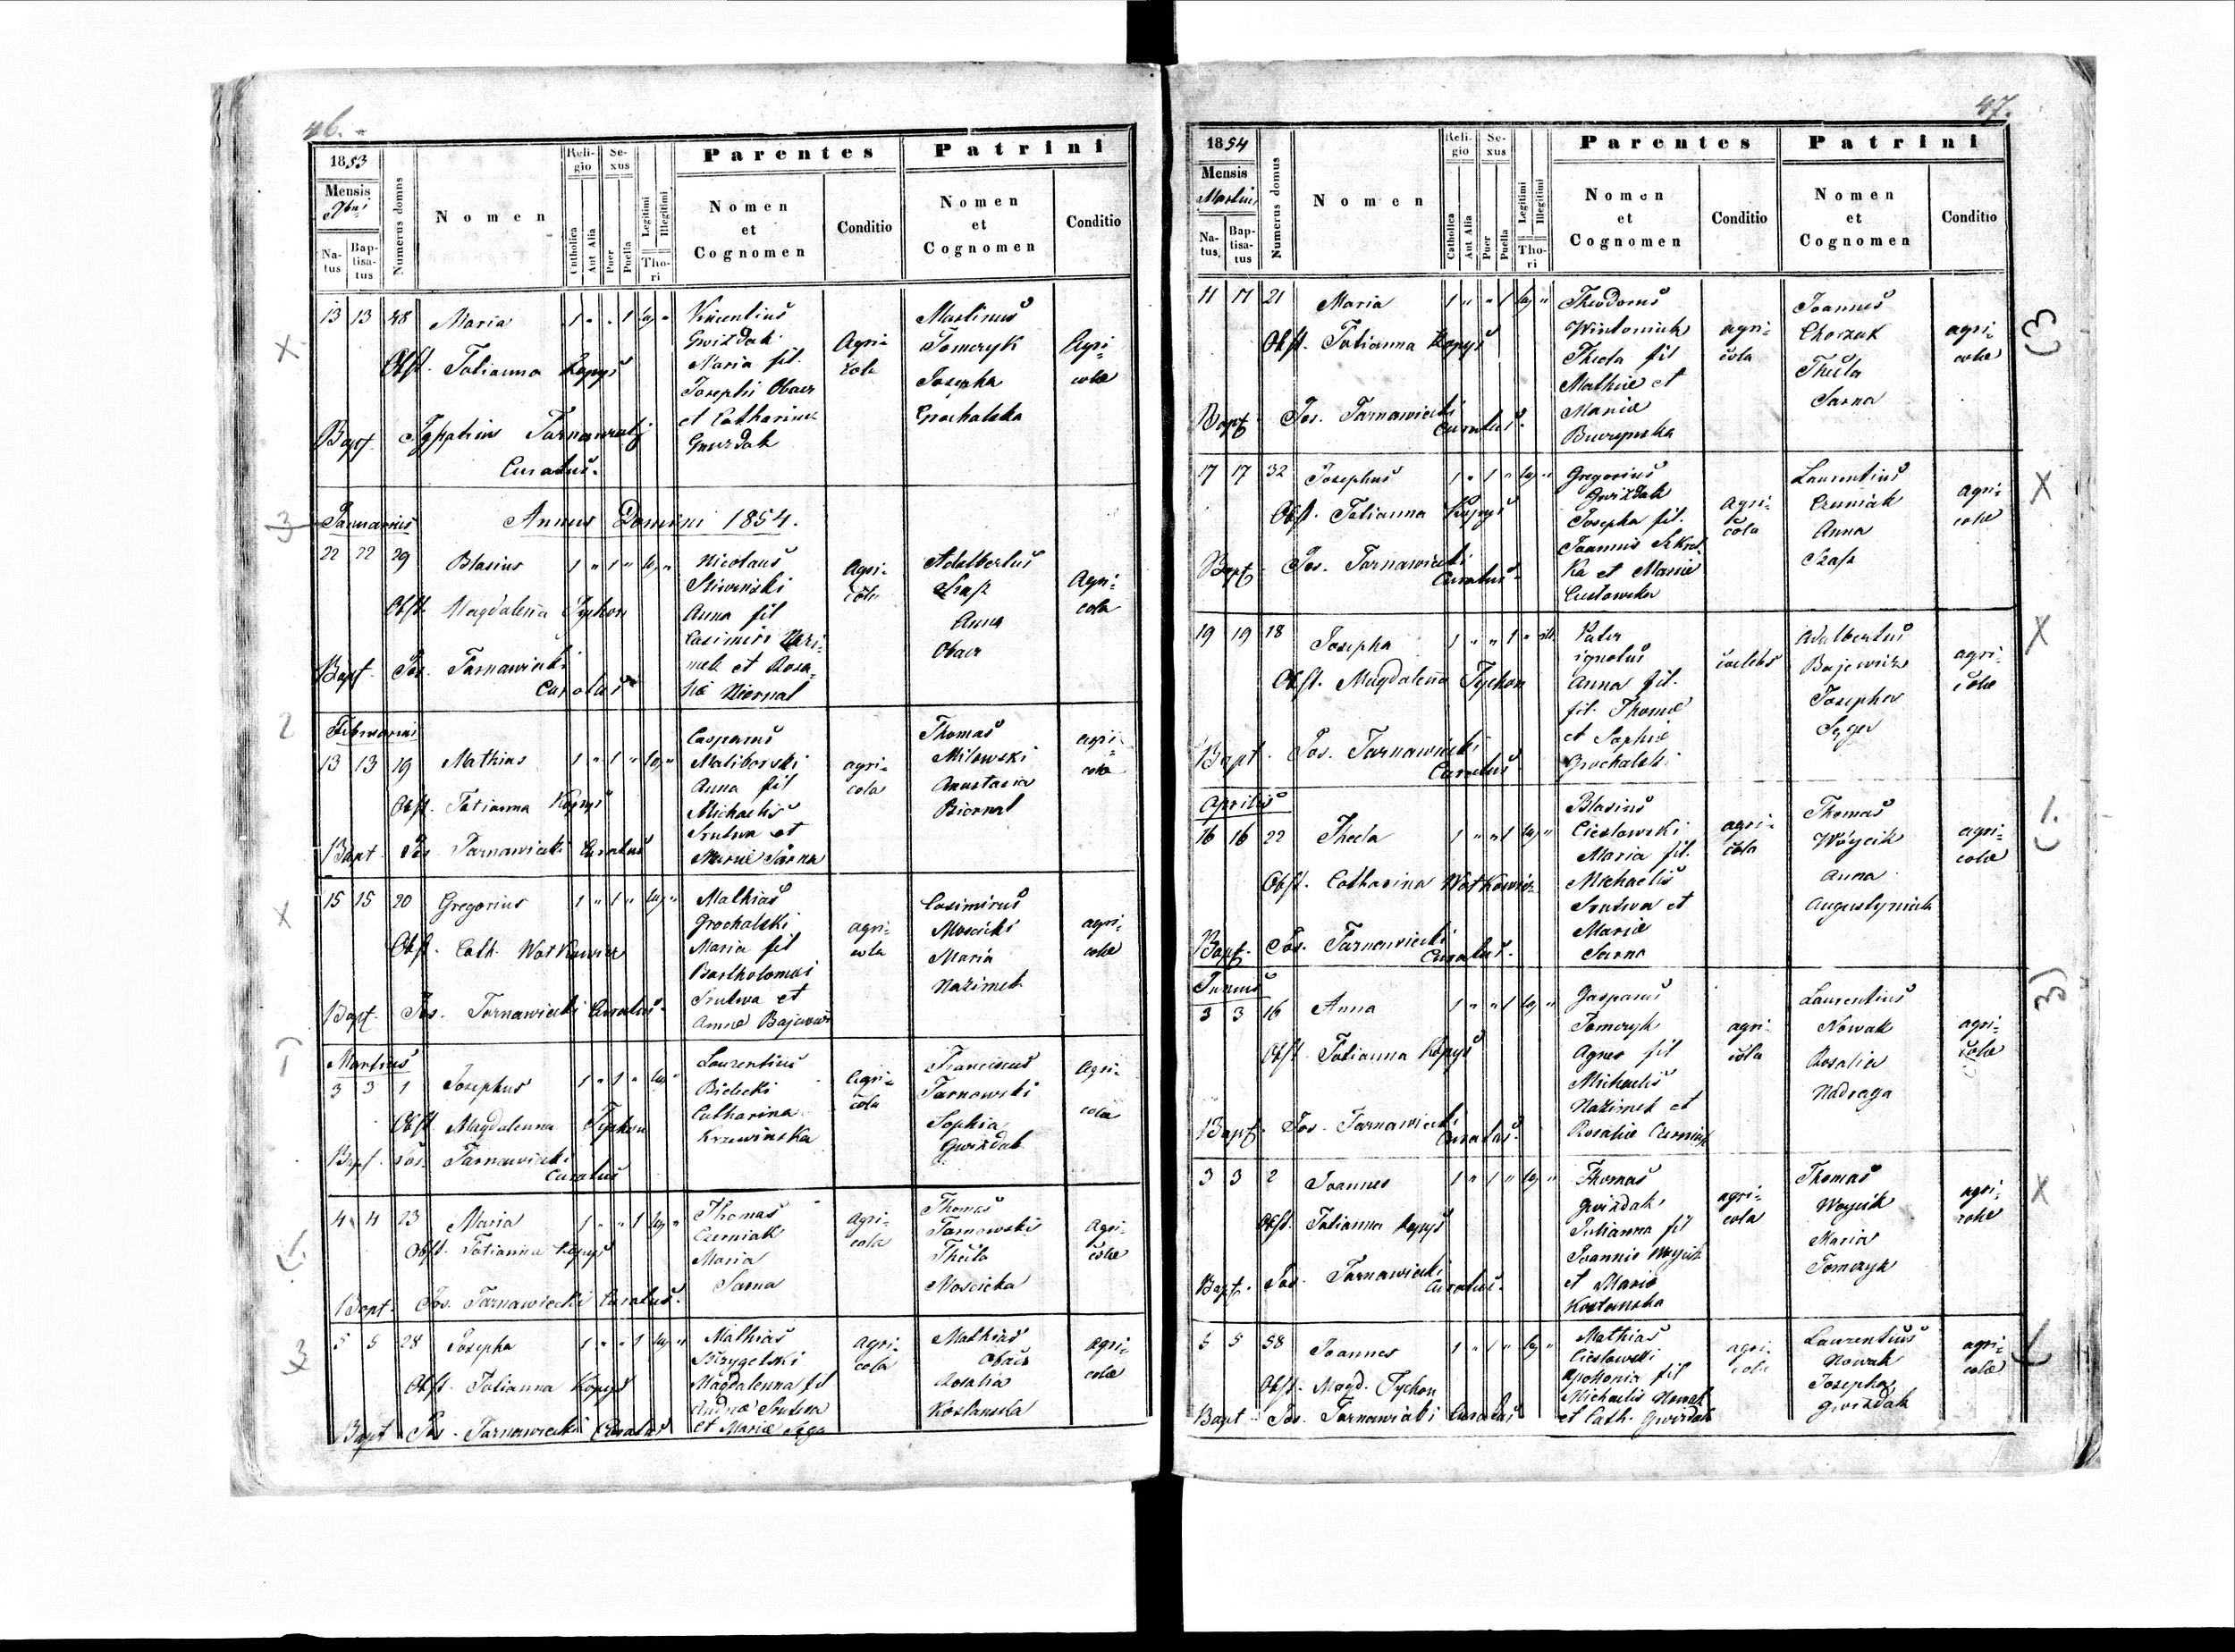 46.
1853
Mensis
9bris
Natus
Baptisatus
Numerus domus
Nomen
Religio
Catholica
Aut Alia
Sexus
Puer
Puella
Legitimi
Illegitimi
Thori
Parentes
Nomen et Cognomen
Conditio
Patrini
Nomen et Cognomen
Conditio
13 13 48 Maria 1 " " 1 leg "
Obst. Tatianna Kopyś
Bapt.
Curatus.
Vincentius
Gwizdak
Maria fil.
Josephi Obacz
et Catharinae
Gwizdak
Agricola
Martinus
Tomczyk
Josepha
Grochalska
Agricolae
Januarius
Annus Domini 1854.
22 22 29 Blasius 1 " 1 " leg "
Obst. Magdalena Tychon
Bapt. Jos. Tarnawiecki
Curatus
Nicolaus
Anna fil
Casimiri
et Rosaliae
Biernat
Agricola
Adalbertus
Anna
Obacz
Agricola
Februarius
13 13 19 Mathias 1 " 1 " leg "
Obst. Tatianna Kopyś
Bapt. Jos. Tarnawiecki Curatus
Casparus
Maliborski
Anna fil
Michaelis
Srutwa et
Mariae Sarna
agricola
Thomas
Milewski
Anastasia
Biernat
agricolae
15 15 20 Gregorius 1 " 1 " leg "
Obst. Cath. Wotkowicz
Bapt. Jos. Tarnawiecki Curatus.
Mathias
Grochalski
Maria fil
Bartholomaei
Srutwa et
Annae
agricola
Casimirus
Mościcki
Maria
Nazimek
agricolae
Martius
3 3 1 Josephus 1 " 1 " leg "
Obst Magdalenna Tychon
Bapt. Jos. Tarnawiecki
Curatus
Laurentius
Bielecki
Catharina
Krzewinska
Agricola
Franciscus
Tarnowski
Sophia
Gwizdak
Agricola
4 4 23 Maria 1 " " 1 leg "
Obst. Tatianna Kopyś
Bapt. Jos. Tarnawiecki Curatus.
Thomas
Czerniak
Maria
Sarna
Agricola
Thomas
Tarnowski
Thecla
Mościcka
Agricolae
5 5 28 Josepha 1 " " 1 leg "
Obst. Tatianna Kopyś
Bapt Jos. Tarnawiecki Curatus
Mathias
Strzygelski
Magdalenna fil
Andreae Srutwa
et Mariae Sega
agricola
Mathias
Obacz
Rosalia
Kostanska
agricolae
47.
1854
Mensis
Martius
Natus,
Baptisatus
Numerus domus
Nomen
Religio
Catholica
Aut Alia
Sexus
Puer
Puella
Legitimi
Illegitimi
Thori
Parentes
Nomen et Cognomen
Conditio
Patrini
Nomen et Cognomen
Conditio
11 17 21 Maria 1 " " 1 leg "
Obst. Tatianna Kopyś
Bapt. Jos. Tarnawiecki
Curatus.
Theodorus
Wintoniak
Thecla fil
Mathiae et
Mariae
Buczynska
agricola
Joannes
Chorzak
Thecla
Sarna
agricolae
17 17 32 Josephus 1 " 1 " leg "
Obst. Tatianna Kopyś
Bapt. Jos. Tarnawiecki
Curatus.
Gregorius
Gwizdak
Josepha fil.
Joannis
et Mariae
agricola
Laurentius
Czerniak
Anna
agricolae
19 19 18 Josepha 1 " " 1 " ill.
Obst. Magdalena Tychon
Bapt. Jos. Tarnawiecki
Curatus
Pater
ignotus
Anna fil.
fil. Thomae
et Sophiae
Grochalski
caelebs
Adalbertus
Bajewicz
Josepha
Sega
agricolae
Aprilis
16 16 22 Thecla 1 " " 1 leg "
Obst. Catharina Wotkowicz
Bapt. Jos. Tarnawiecki
Curatus.
Blasius
Cieslowski
Maria fil.
Michaelis
Srutwa et
Mariae
Sarna
agricola
Thomas
Wóycik
Anna
Augustyniak
agricolae
Junius
3 3 16 Anna 1 " " 1 leg "
Obst. Tatianna Kopyś
Bapt. Jos. Tarnawiecki
Curatus.
Gasparus
Tomczyk
Agnes fil
Michaelis
Nazimek et
Rosaliae Czerniak
agricola
Laurentius
Nowak
Rosalia
Nadraga
agricolae
3 3 2 Joannes 1 " 1 " leg "
Obst. Tatianna Kopyś
Bapt. Jos. Tarnawiecki
Curatus.
Thomas
Gwizdak
Julianna fil
Joannis Woycik
et Mariae
Kostanska
agricola
Thomas
Woycik
Maria
Tomczyk
agricolae
5 5 58 Joannes 1 " 1 " leg "
Obst. Magd. Tychon
Bapt Jos. Tarnawiecki Curatus
Mathias
Cieslowski
Apollonia fil
Michaelis Nowak
et Cath. Gwizdak
agricola
Laurentius
Nowak
Josepha
Gwizdak
agricolae